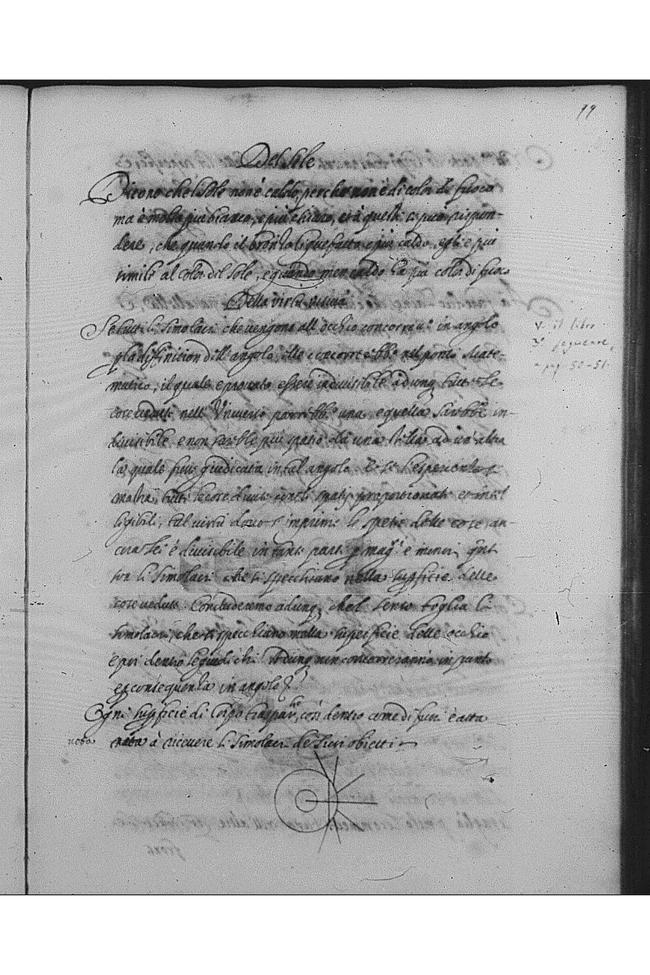 99
Del sole
Dicono che 'l sole non è caldo, perche non è di color di fuoco
ma è molto piu bianco, e piu chiaro, et à questi si puo rispon-
dere, che quando el bronzo liquefatto è piu caldo, egli è piu
simile al color del sole, e quando men caldo ha piu color di fuoco
Della virtù visiva
Se tutti li simolacri che vengono all' occhio concorrin.o in angolo
p la difinition dell' angolo, elle concorrebbe nel ponto Mate-
matico, il quale è provato essere indivisibile, adunq tutte le
cose vedute nell' Universo parrebbe una, e quella sarebbe in-
divisibile, e non sarebbe piu spatio dà una stella ad un' altra
la quale fusse giudicata in tal angolo. E se l' esperientia
mostra tutte le cose divise con li spatij proportionati et intel
ligibili, tal virtù dove s' imprime le spetie delle cose an-
cora lei è divisibile in tante parti
li simolacri che si specchiano nella supficie delle
cose vedute. Concluderemo adunq che'l senso toglia li
simolacri, che si specchiano nalla superficie delle occhio
e poi dentro le giudichi. Adunq non concorreranno in punto
e p consequentia in angolo
Ogni supficie di Corpo traspar.te cosi dentro come di fuori è atta
à ricevere li simolacri de suoi obietti
v. il libro
seguente,
pg. 50-51